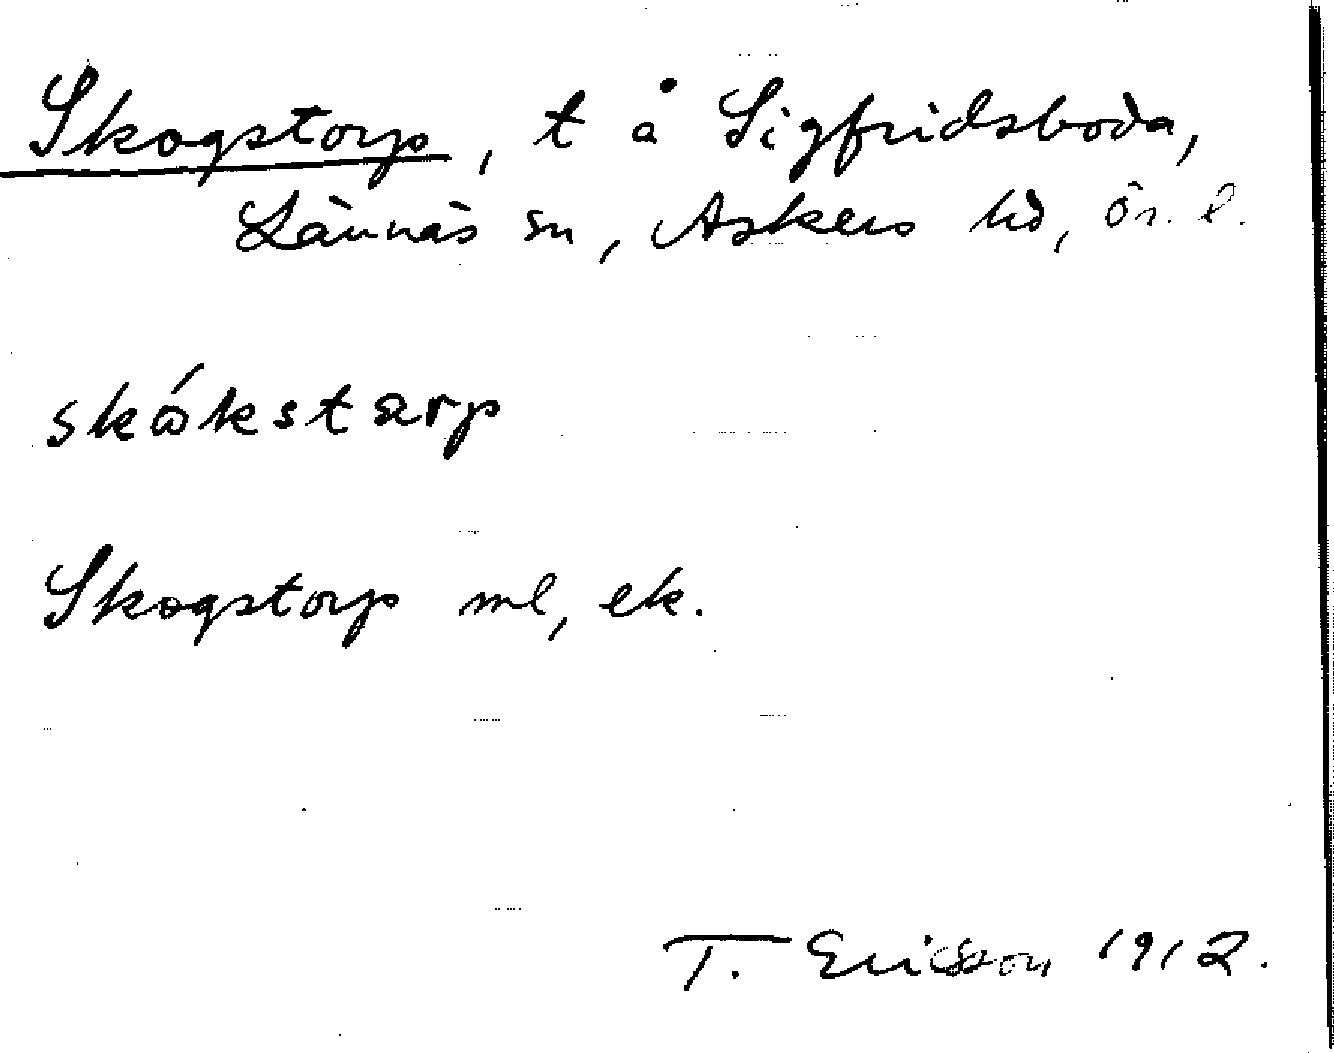 Skogstorp, t å Sigfridsboda,
Lännäs sn, Askers hd, Ör. l.
skώkstarp
Skogstorp ml, ek.
T. Ericsson 1912.